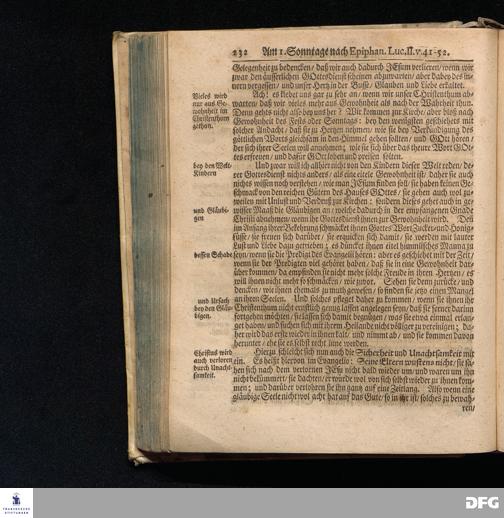 232 Am 1. Sonntage nach Epiphan. Luc. II. v. 41-52.
Gelegenheit zu bedencken/ daß wir auch dadurch JEsum verlieren/ wenn wir
zwar den äusserlichen GOttesdienst scheinen abzuwarten/ aber dabey des in-
nern vergessen/ und unser Hertz in der Busse/ Glauben und Liebe erkaltet.
Vieles wird
nur aus Ge-
wohnheit im
Christenthum
gethan.
Ach! es klebet uns gar zu sehr an/ wenn wir unser Christenthum ab-
warten/ daß wir vieles mehr aus Gewohnheit als nach der Wahrheit thun.
Denn gehts nicht also bey uns her? Wir kommen zur Kirche/ aber bloß nach
Gewohnheit des Fests oder Sonntags: bey den wenigsten geschiehets mit
solcher Andacht/ daß sie zu Hertzen nehmen/ wie sie bey Verkündigung des
göttlichen Worts gleichsam in den Himmel gehen sollten/ und GOtt hören/
der sich ihrer Seelen will annehmen; wie sie sich über das theure Wort GOt-
tes erfreuen/ und dafür GOtt loben und preisen sollten.
bey den Welt-
Kindern
Und zwar will ich allhier nicht von den Kindern dieser Welt reden/ de-
rer Gottesdienst nichts anders/ als eine eitele Gewohnheit ist/ daher sie auch
nichts wissen noch verstehen/ wie man JEsum finden soll/ sie haben keinen Ge-
schmack von den reichen Gütern des Hauses GOttes/ sie gehen auch wol zu-
weilen mit Unlust und Verdruß zur Kirchen:
und Gläubi-
gen
sondern dieses gehet auch in ge-
wisser Maaß die Gläubigen an/ welche dadurch in der empfangenen Gnade
Christi abnehmen/ wenn ihr Gottesdienst ihnen zur Gewohnheit wird. Denn
im Anfang ihrer Bekehrung schmäcket ihnen Gottes Wort Zucker- und Honig-
süsse/ sie freuen sich darüber/ sie erquicken sich damit/ sie werden mit lauter
Lust und Liebe dazu getrieben; es düncket ihnen eitel himmlisches Manna zu
dessen Schade.
seyn/ wenn sie die Predigt des Evangelii hören: aber es geschiehet mit der Zeit/
wenn sie der Predigten viel gehöret haben/ daß sie in eine Gewohnheit dar-
über kommen/ da empfinden sie nicht mehr solche Freude in ihren Hertzen/ es
will ihnen nicht mehr so schmäcken/ wie zuvor. Sehen sie denn zurücke/ und
dencken/ wie ihnen ehemals zu muth gewesen/ so finden sie jetzo einen Mangel
und Ursach
bey den Gläu-
bigen.
an ihrer Seelen. Und solches pfleget daher zu kommen/ wenn sie ihnen ihr
Christenthum nicht ernstlich genug lassen angelegen seyn/ daß sie ferner darinn
fortgehen möchten/ sie lassen sich damit begnügen/ was sie etwa einmal erlan-
get haben/ und suchen sich mit ihrem Heilande nicht völliger zu vereinigen; da-
her wird das erste wieder in ihnen kalt/ und nimmt ab/ und sie kommen davon
herunter/ ehe sie es selbst recht inne werden.
Christus wird
auch verloren
durch Unacht-
samkeit.
Hierzu schleicht sich nun auch die Sicherheit und Unachtsamkeit mit
ein. Es heißt hiervon im Evangelio: Seine Eltern wustens nicht; sie sa-
hen sich nach dem verlornen JEsu nicht bald wieder um/ und waren um ihn
nicht bekümmert/ sie dachten/ er würde wol von sich selbst wieder zu ihnen kom-
men; und darüber verlohren sie ihn gantz auf eine Zeitlang. Also wenn eine
gläubige Seele nicht wol acht hat auf das Gute/ so in ihr ist/ solches zu bewah-
ren/
FRANCKESCHE
STIFTUNGEN
DFG